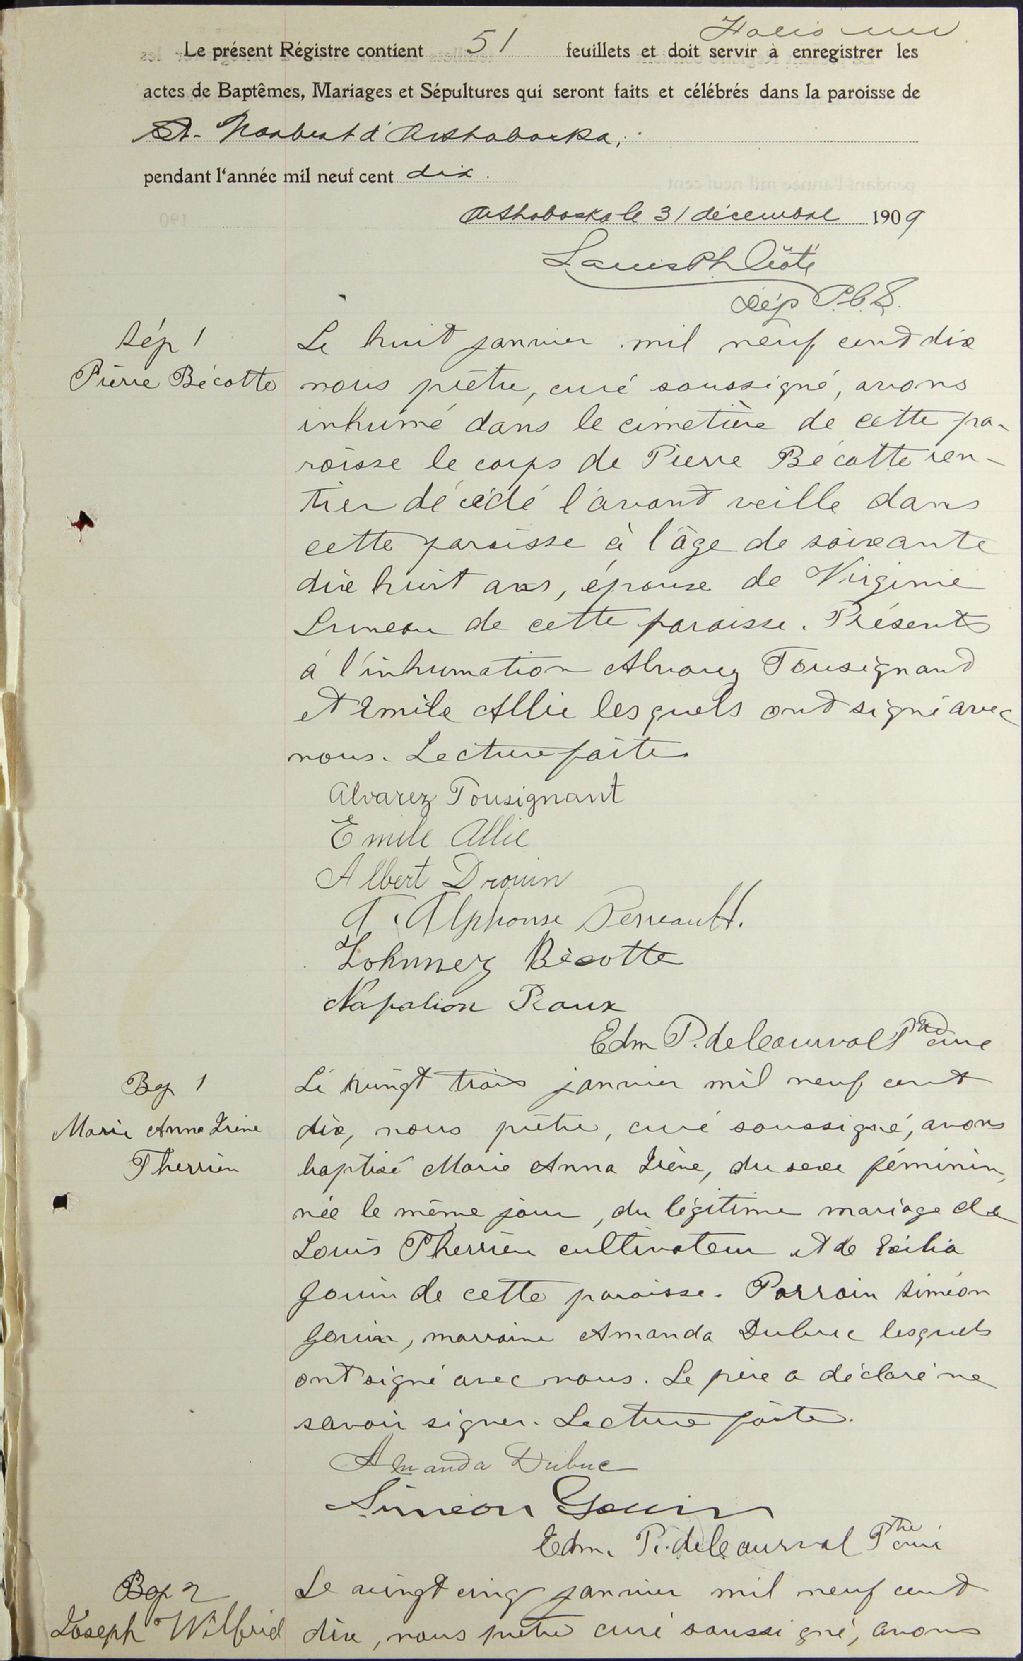 Folio un
Le présent Régistre contient 51 feuillets et doit servir à enregistrer les
actes de Baptêmes, Mariages et Sépultures qui seront faits et célébrés dans la paroisse de
St. Norbert d'Arthabaska,
pendant l'année mil neuf cent dix
Arthabaska le 31 décembre 1909
Louis Ph Côté
Dép P.C.S.
Sép 1
Pierre Bécotte
Le huit janvier mil neuf cent dix
nous prêtre, curé soussigné, avons
inhumé dans le cimetière de cette pa-
roisse le corps de Pierre Bécotte ren-
tier décédé l'avant veille dans
cette paroisse à l'âge de soixante
dix huit ans, époux de Virginie
Luneau de cette paroisse. Présents
à l'inhumation Alvarez Tousignand
et Emile Allie lesquels ont signé avec
nous. Lecture faite
Alvarez Tousignant
Emile Allie
Albert Drouin
T. Alphonse Perreault.
Johnney Bécotte
Napoléon Roux
Edm P. de Courval Ptre curé
Bap 1
Marie Anna Irène
Therrien
Le vingt trois janvier mil neuf cent
dix, nous prêtre, curé soussigné, avons
baptisé Marie Anna Irène, du sexe féminin,
née le même jour, du légitime mariage de
Louis Therrien cultivateur et de Exilia
Gouin de cette paroisse. Parrain Siméon
Gouin, marraine Amanda Dubuc lesquels
ont signé avec nous. Le père a déclaré ne
savoir signer. Lecture faite.
Amanda Dubuc
Siméon Gouin
Edm. P. de Courval Ptre curé
Bap 2
Joseph Wilfrid
Le vingt cinq janvier mil neuf cent
dix, nous prêtre curé soussigné, avons